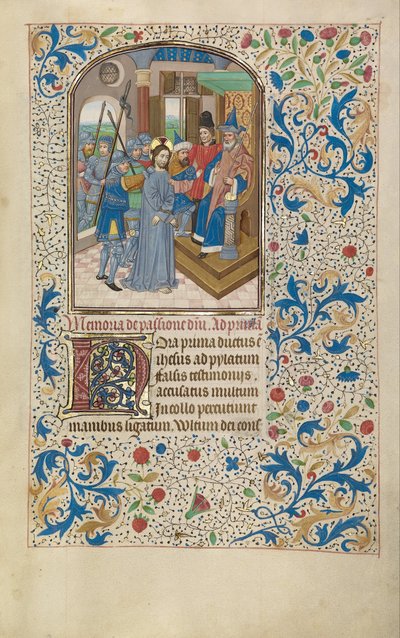 Memoria de passione dñi. Ad prima
Hora prima ductus e
ihesus ad pylatum
falsis testimonys
accusatus multum
in collo percutiunt
manibus ligatum Vltum dei cons